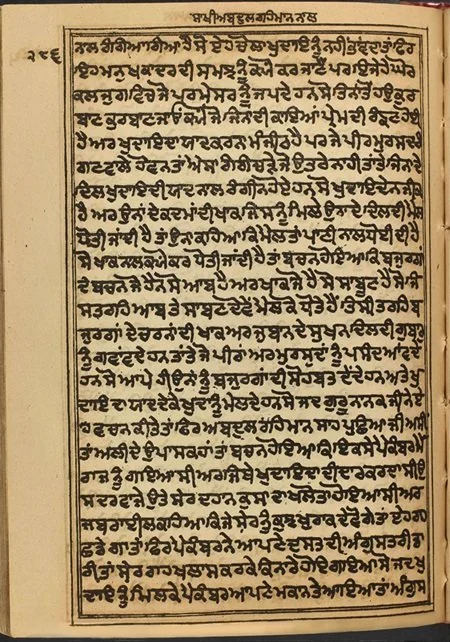 ਸਾਖੀ ਅਬਦੁਲ ਰਹਿਮਾਨ ਨਾਲ
੨੮੬
ਨਾਲ ਰੰਗਿਆ ਗਿਆ ਹੈ ਸੋ ਏਹ ਚੋਲਾ ਖੁਦਾਇ ਨੂੰ ਨਹੀਂ ਤਾਂ ਫਿਰ
ਇਹ ਮਨੁਖ ਕਾਦਰ ਦੀ ਸਮਝ ਨੂੰ ਜੇ ਘੋਰ
ਕਲਜੁਗ ਵਿਚ ਜੇ ਪਰਮੇਸਰ ਨੂੰ ਜਪਦੇ ਹਨ ਸੋ ਤਿਨਾਂ ਤੋਂ ਹਉ ਕੁਰ
ਬਾਣ ਕੁਰਬਾਣ ਜਾਂਉ ਜਿਨ ਦੀ ਕਾਇਆਂ ਪ੍ਰੇਮ ਦੀ ਹੋਈ
ਹੈ ਅਰ ਖੁਦਾਇ ਦਾ ਯਾਦ ਕਰਨ ਮੰਜੀਠ ਹੈ ਪਰ ਜੇ ਪੀਰ ਮੁਰਸ਼ਦ
ਵਾਲੇ ਹੋਵਨ ਤਾਂ ਐਸਾ ਰੰਗ ਚੜੇ ਜੋ ਉਤਰੇ ਨਾਹੀ ਤਾਂ ਤੇ ਜਿਨਾ ਦੇ
ਦਿਲ ਖੁਦਾਇ ਦੀ ਯਾਦ ਨਾਲ ਰੰਗੀਨ ਹੋਏ ਹਨ ਸੋ ਖੁਦਾਇ ਦੇ ਨਜੀਕ
ਹੈ ਅਰ ਉਨਾਂ ਦੇ ਕਦਮਾਂ ਦੀ ਖਾਕ ਜਿਸ ਨੂੰ ਮਿਲੇ ਉਨਾ ਦੇ ਦਿਲ ਦੀ ਮੈਲ
ਧੋਤੀ ਜਾਂਦੀ ਹੈ ਤਾਂ ਉਨ ਕਹਿਆ ਕਿ ਮੈਲ ਤਾਂ ਪਾਣੀ ਨਾਲ ਧੋਬੀ ਦੀ ਹੈ
ਸੋ ਖਾਕ ਨਾਲ ਕਿਉਂ ਕਰ ਧੋਤੀ ਜਾਂਦੀ ਹੈ ਤਾਂ ਬਚਨ ਹੋਇਆ ਕਿ ਬੁਜਰਗਾਂ
ਦੇ ਬਚਨ ਜੋ ਹੈਨ ਸੋ ਆਬ ਹੈ ਅਰ ਖਾਕ ਜੋ ਹੈ ਸੋ ਸਾਬੂਣ ਹੈ ਸੋ ਜਿ
ਸ ਤਰਹਿ ਆਬ ਤੇ ਸਾਬਣ ਦੋਵੇਂ ਮੈਲ ਕੋ ਧੋਤੇ ਹੈਂ ਤਿਸੀ ਤਰਹਿ ਬ
ਜੁਰਗਾਂ ਦੇ ਚਰਨਾਂ ਦੀ ਖਾਕ ਅਰ ਜੁਬਾਨ ਦੇ ਸੁਖਨ ਦਿਲ ਦੀ ਗੁਬਾਰ
ਨੂੰ ਗਵਾਂਵਦੇ ਹਨ ਤਾਂ ਤੇ ਜੋ ਪੀਰਾਂ ਅਰ ਮੁਰਸਦਾਂ ਨੂੰ ਪਸੰਦ ਆਂਵਦੇ
ਹਨ ਸੋ ਆਪੇ ਹੀ ਉਨਾਂ ਨੂੰ ਬਜੁਰਗਾਂ ਦੀ ਸੋਹਬਤ ਦੇਂਦੇ ਹਨ ਅਤੇ ਖੁ
ਦਾਇ ਦਾ ਯਾਦ ਦੇਕੇ ਖੁਦਾਇ ਨੂੰ ਮੇਲਦੇ ਹਨ ਸੋ ਜਦ ਗੁਰੂ ਨਾਨਕ ਜੀ ਨੇ ਏ
ਹ ਬਚਨ ਕੀਤੇ ਤਾਂ ਫਿਰ ਅਬਦੁਲ ਰਹਿਮਾਨ ਸਾਹ ਪੁਛਿਆ ਜੀ ਅਸੀਂ
ਤਾਂ ਅਲੀ ਦੇ ਉਪਾਸਕ ਹਾਂ ਤਾਂ ਬਚਨ ਹੋਇਆ ਕਿ ਇਕ ਸਮੇ ਪੈਕੰਬਰ ਮੇ
ਰਾਜ ਨੂੰ ਗਇਆ ਸੀ ਅਰ ਜਿਥੇ ਖੁਦਾਇ ਦਾ ਦੀਦਾਰ ਕਰਦਾ ਸੀ ਉ
ਸ ਦਰਵਾਜੇ ਉਤੇ ਸੇਰ ਦਹਨ ਕੁਸਾਦਾ ਖਲੋਤਾ ਹੋਇਆ ਸੀ ਅਰ
ਜਬਰਾਈਲ ਕਹਿਆ ਕਿ ਜੇ ਸੇਰ ਨੂੰ ਕੁਛ ਖੁਰਾਕ ਦੇਵੋਗੇ ਤਾਂ ਏਹ ਰਾਹ
ਛਡੇਗਾ ਤਾਂ ਫਿਰ ਪੈਕੰਬਰ ਨੇ ਆਪਣੇ ਦਸਤ ਦੀ ਅੰਗੁਸਤਰੀ ਤਾ
ਰੀ ਤਾਂ ਸੇਰ ਰਾਹ ਖੁਲਾਸ ਕਰਕੇ ਕਿਨਾਰੇ ਹੋਇ ਗਇਆ ਸੋ ਜਦ ਖੁ
ਦਾਇ ਨੂੰ ਮਿਲ ਕੇ ਪੈਕੰਬਰ ਆਪਣੇ ਮਕਾਨ ਤੇ ਆਇਆ ਤਾਂ ਅੰਗੁਸ